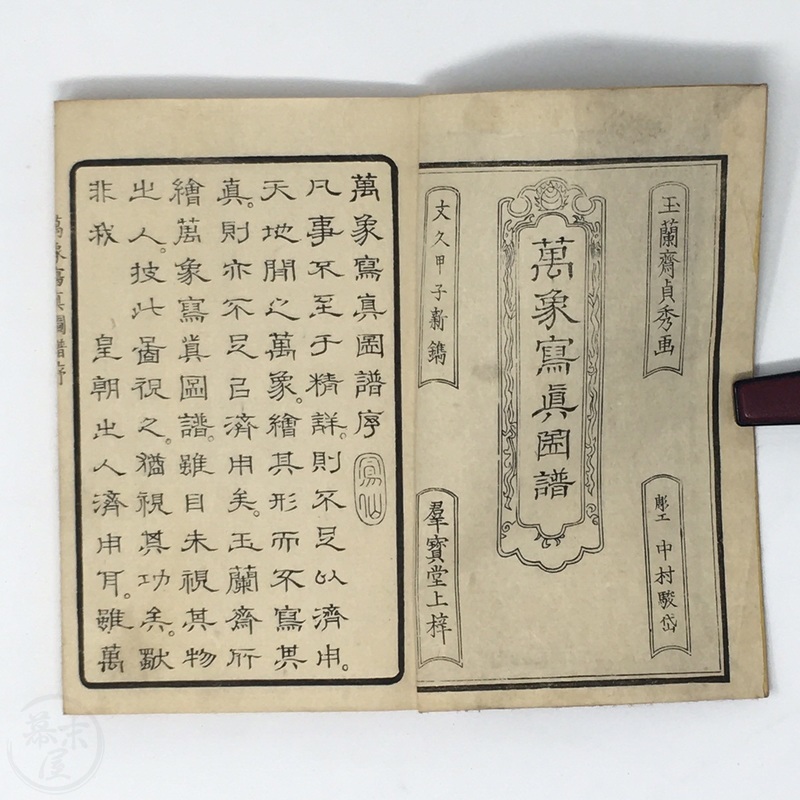 玉蘭齋貞秀画
彫工 中村駿岱
萬象寫眞圖譜
文久甲子新鐫
羣寶堂上梓
萬象寫真圖譜序
凡事不至于精詳。則不足以濟用。
天地間之萬象。繪其形而不寫其
真。則亦不足㠯濟用矣。玉蘭齋所
繪萬象寫真圖譜。雖目未視其物
之人。披此啚視之。猶視其功矣。
非我 皇朝之人濟用耳。雖萬
萬象寫真圖譜序
幕末屋